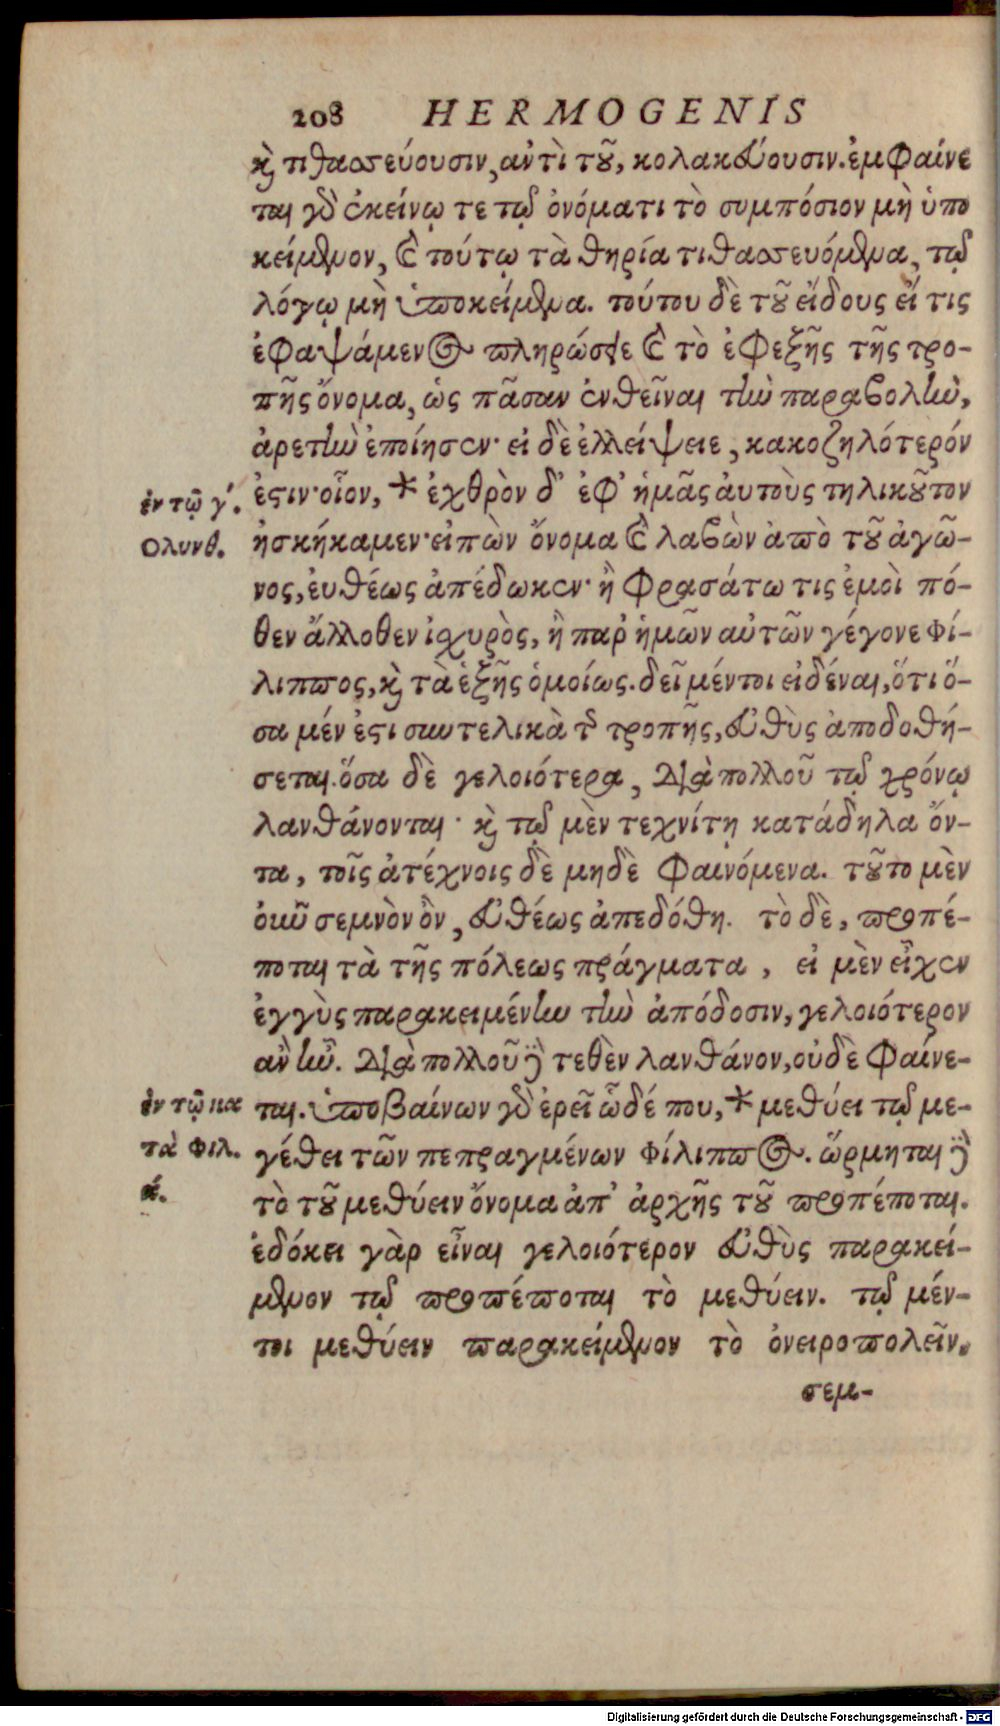 208 HERMOGENIS
καὶ τιθασσεύουσιν, αὐτὶ τοῦ, κολακεύουσιν. ἐμφαίνε
ται γὰρ ἐκείνῳ τε τῷ ὀνόματι τὸ συμπόσιον μὴ ὑπο
κείμενον, καὶ τούτῳ τὰ θηρία τιθασσευόμενα, τῷ
λόγῳ μὴ ὑποκείμενα. τούτου δὲ τοῦ εἴδους εἴ τις
ἐφαψάμενος πληρώσειε καὶ τὸ ἐφεξῆς τῆς τρο-
πῆς ὄνομα, ὡς πᾶσαν ἐνθεῖναι τὴν παραβολὴν,
ἀρετὴν ἐποίησεν· εἰ δὲ ἐλλείψειε, κακοζηλότερόν
ἐν τῷ γʹ. ἐστιν· οἷον, * ἐχθρὸν δ' ἐφ' ἡμᾶς αὐτοὺς τηλικοῦτον
Ολυνθ. ἠσκήκαμεν· εἰπὼν ὄνομα καὶ λαβὼν ἀπὸ τοῦ ἀγῶ-
νος, εὐθέως ἀπέδωκεν· ἢ φρασάτω τις ἐμοὶ πό-
θεν ἄλλοθεν ἰσχυρὸς, ἢ παρ' ἡμῶν αὐτῶν γέγονε Φί-
λιππος, καὶ τὰ ἑξῆς ὁμοίως. δεῖ μέντοι εἰδέναι, ὅτι ὅ-
σα μέν ἐστι συντελικὰ τῆς τροπῆς, εὐθὺς ἀποδοθή-
σεται. ὅσα δὲ γελοιότερα, διὰ πολλοῦ τῷ χρόνῳ
λανθάνονται· καὶ τῷ μὲν τεχνίτῃ κατάδηλα ὄν-
τα, τοῖς ἀτέχνοις δὲ μηδὲ φαινόμενα. τοῦτο μὲν
οὖν σεμνὸν ὂν, εὐθέως ἀπεδόθη. τὸ δὲ, προπέ-
ποται τὰ τῆς πόλεως πράγματα, εἰ μὲν εἶχεν
ἐγγὺς παρακειμένην τὴν ἀπόδοσιν, γελοιότερον
ἂν ἦν. διὰ πολλοῦ δὲ τεθὲν λανθάνον, οὐδὲ φαίνε-
ἐν τῷ κα ται. ὑποβαίνων γὰρ ἐρεῖ ὧδέ που, * μεθύει τῷ με-
τὰ Φιλ. γέθει τῶν πεπραγμένων Φίλιππος. ὥρμηται δὲ
ά. τὸ τοῦ μεθύειν ὄνομα ἀπ' ἀρχῆς τοῦ προπέποται.
ἐδόκει γὰρ εἶναι γελοιότερον εὐθὺς παρακεί-
μενον τῷ προπέποται τὸ μεθύειν. τῷ μέν-
τοι μεθύειν παρακείμενον τὸ ὀνειροπολεῖν.
σεμ-
Digitalisierung gefördert durch die Deutsche Forschungsgemeinschaft - DFG